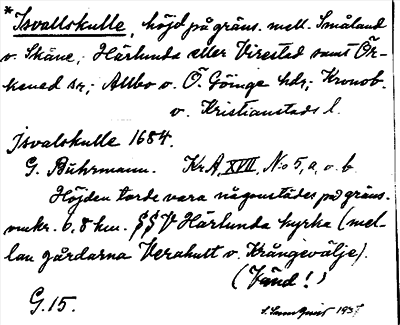 *Isvallskulle, höjd på gräns. mell. Småland
o. Skåne; Härlunda eller Virestad samt Ör-
kened sr; Allbo o. Ö. Göinge hdr; Kronob.
o. Kristianstads l.
Isvalskulle 1684.
G. Buhrmann. KrA, XVII, No 5, a, o. b.
Höjden torde vara någonstädes på gräns.
omkr. 6,8 km. SSV Härlunda kyrka (mel-
lan gårdarna Verahult o. Krångevälje).
(Vänd!)
G. 15. 1937